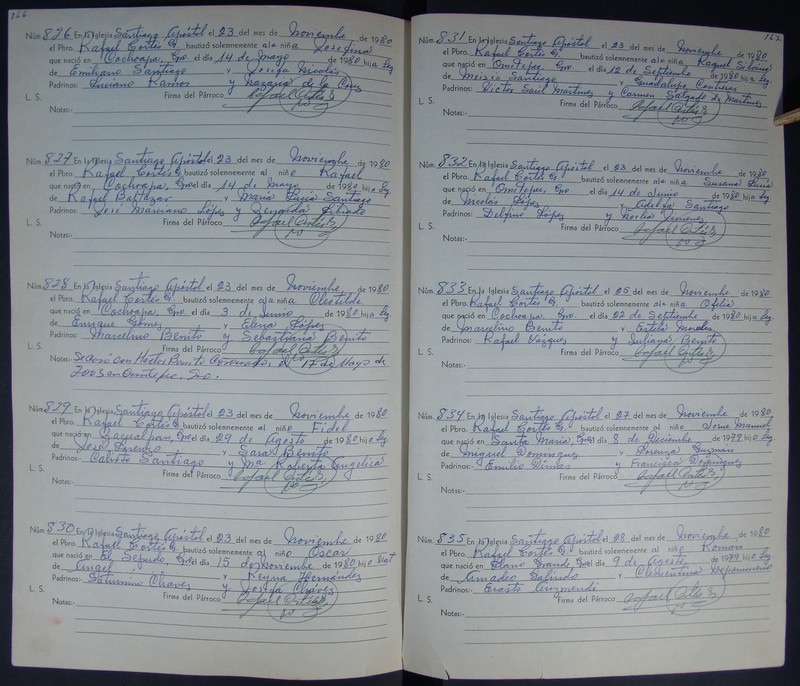 166
Núm. 826 En la Iglesia Santiago Apóstol el 23 del mes de Noviembre de 1980
el Pbro. Rafael Cortés G. bautizó solemnemente a la niña Josefina
que nació en Cochoapa, Gro. el día 14 de Mayo de 1980 hija leg
de Emiliano Santiago y Josefa Nicolás
Padrinos: Luciano Ramos y de la Cruz
L. S. Firma del Párroco
Notas:-
Núm. 827 En la Iglesia Santiago Apóstol el 23 del mes de Noviembre de 1980
el Pbro. Rafael Cortés G. bautizó solemnemente al niño Rafael
que nació en Cochoapa, Gro. el día 14 de Mayo de 1980 hijo leg
de Rafael Baltazar y María Lucía Santiago
Padrinos: José Marciano López y
L. S. Firma del Párroco
Notas:-
Núm. 828 En la Iglesia Santiago Apóstol el 23 del mes de Noviembre de 1980
el Pbro. Rafael Cortés G. bautizó solemnemente a la niña Clotilde
que nació en Cochoapa, Gro. el día 3 de Junio de 1980 hija leg
de Enrique Gómez y Elena López
Padrinos: Marcelino Benito y Sebastiana Benito
L. S. Firma del Párroco
Notas: Se casó con Benito el 17 de Mayo de
2003 en Ometepec. Gro.
Núm. 829 En la Iglesia Santiago Apóstol el 23 del mes de Noviembre de 1980
el Pbro. Rafael Cortés G. bautizó solemnemente al niño Fidel
que nació en Zacualpan, Gro. el día 29 de Agosto de 1980 hijo leg
de José Lorenzo y Sara Benito
Padrinos: Calixto Santiago y Ma. Roberta Angélica
L. S. Firma del Párroco
Notas:-
Núm. 830 En la Iglesia Santiago Apóstol el 23 del mes de Noviembre de 1980
el Pbro. Rafael Cortés G. bautizó solemnemente al niño Oscar
que nació en Gro. el día 15 de Noviembre de 1980 hijo nat
de Angel y Reyna Hernández
Padrinos: Saturnino Chaves y Chaves
L. S. Firma del Párroco
Notas:-
167
Núm. 831 En la Iglesia Santiago Apóstol el 23 del mes de Noviembre de 1980
el Pbro. Rafael Cortés G. bautizó solemnemente a la niña Raquel
que nació en Ometepec, Gro el día 12 de Septiembre de 1980 hija leg
de Santiago y Guadalupe Contreras
Padrinos: Victor Saul Martínez y Carmen Salgado de Martínez
L. S. Firma del Párroco
Notas:-
Núm. 832 En la Iglesia Santiago Apóstol el 23 del mes de Noviembre de 1980
el Pbro. Rafael Cortés G. bautizó solemnemente a la niña Susana
que nació en Ometepec, Gro el día 14 de Junio de 1980 hija leg
de Nicolás López y Adelfa Santiago
Padrinos: Delfino López y Jiménez
L. S. Firma del Párroco
Notas:-
Núm. 833 En la Iglesia Santiago Apóstol el 25 del mes de Noviembre de 1980
el Pbro. Rafael Cortés G. bautizó solemnemente a la niña Ofelia
que nació en Cochoapa, Gro. el día 02 de Septiembre de 1980 hija leg.
de Marcelino Benito y Estela Morales
Padrinos: Rafael Vázquez y Juliana Benito
L. S. Firma del Párroco
Notas:-
Núm. 834 En la Iglesia Santiago Apóstol el 27 del mes de Noviembre de 1980
el Pbro. Rafael Cortés G. bautizó solemnemente al niño Manuel
que nació en Santa María, Gro el día 8 de Diciembre de 1979 hijo leg.
de Miguel Domínguez y Lorenza Guzmán
Padrinos: Emilio Dimas y Francisca Domínguez
L. S. Firma del Párroco
Notas:-
Núm. 835 En la Iglesia Santiago Apóstol el 28 del mes de Noviembre de 1980
el Pbro. Rafael Cortés G. bautizó solemnemente al niño Román
que nació en Llano Grande, Gro el día 9 de Agosto de 1979 hijo leg
de Amadeo Galindo y Clementina Nepomuceno
Padrinos: Erasto
L. S. Firma del Párroco
Notas:-